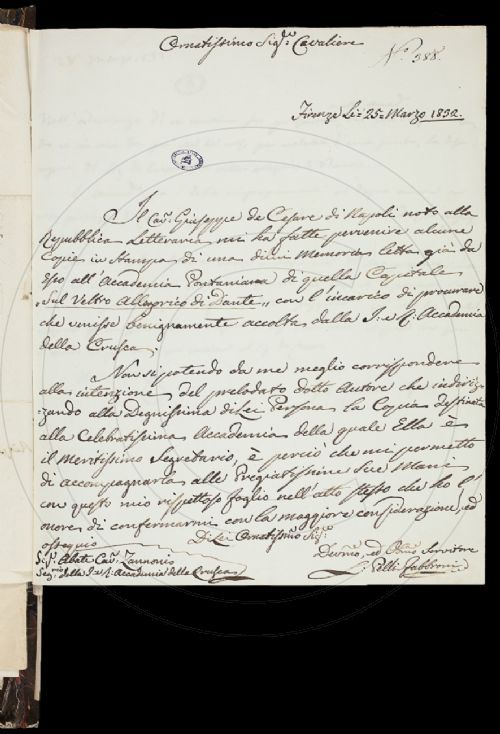 Ornatissimo Sig.r Cavaliere
N.o 388.
Firenze Li= 25= Marzo 1832.
Il Cav. Giuseppe de Cesare di Napoli noto alla
Repubblica Letteraria mi ha fatte pervenire alcune
Copie in Stampa di una di lui Memoria letta già da
Esso all'Accademia Pontaniana di quella Capitale
"Sul Veltro Allegorico di Dante" con l'incarico di procurare
che venisse benignamente accolta dalla I. e R. Accademia
della Crusca.
Non si potendo da me meglio corrispondere
alla intenzione del prelodato dotto Autore che indiriz-
zando alla Degnissima di Lei Persona la Copia destinata
alla Celebratissima Accademia della quale Ella è
il Meritissimo Segretario, è perciò che mi permetto
di accompagnarla alle Pregiatissime Sue Mani
con questo mio rispettoso foglio nell'atto stesso che ho l'
onore di confermarmi con la maggiore considerazione, ed
ossequio
Di Lei Ornatissimo Sig.r
Sig.r Abate Cav. Zannoni
Seg.rio della I. e R. Accademia della Crusca
Devmo, ed Obmo Servitore
Pelli Fabbroni